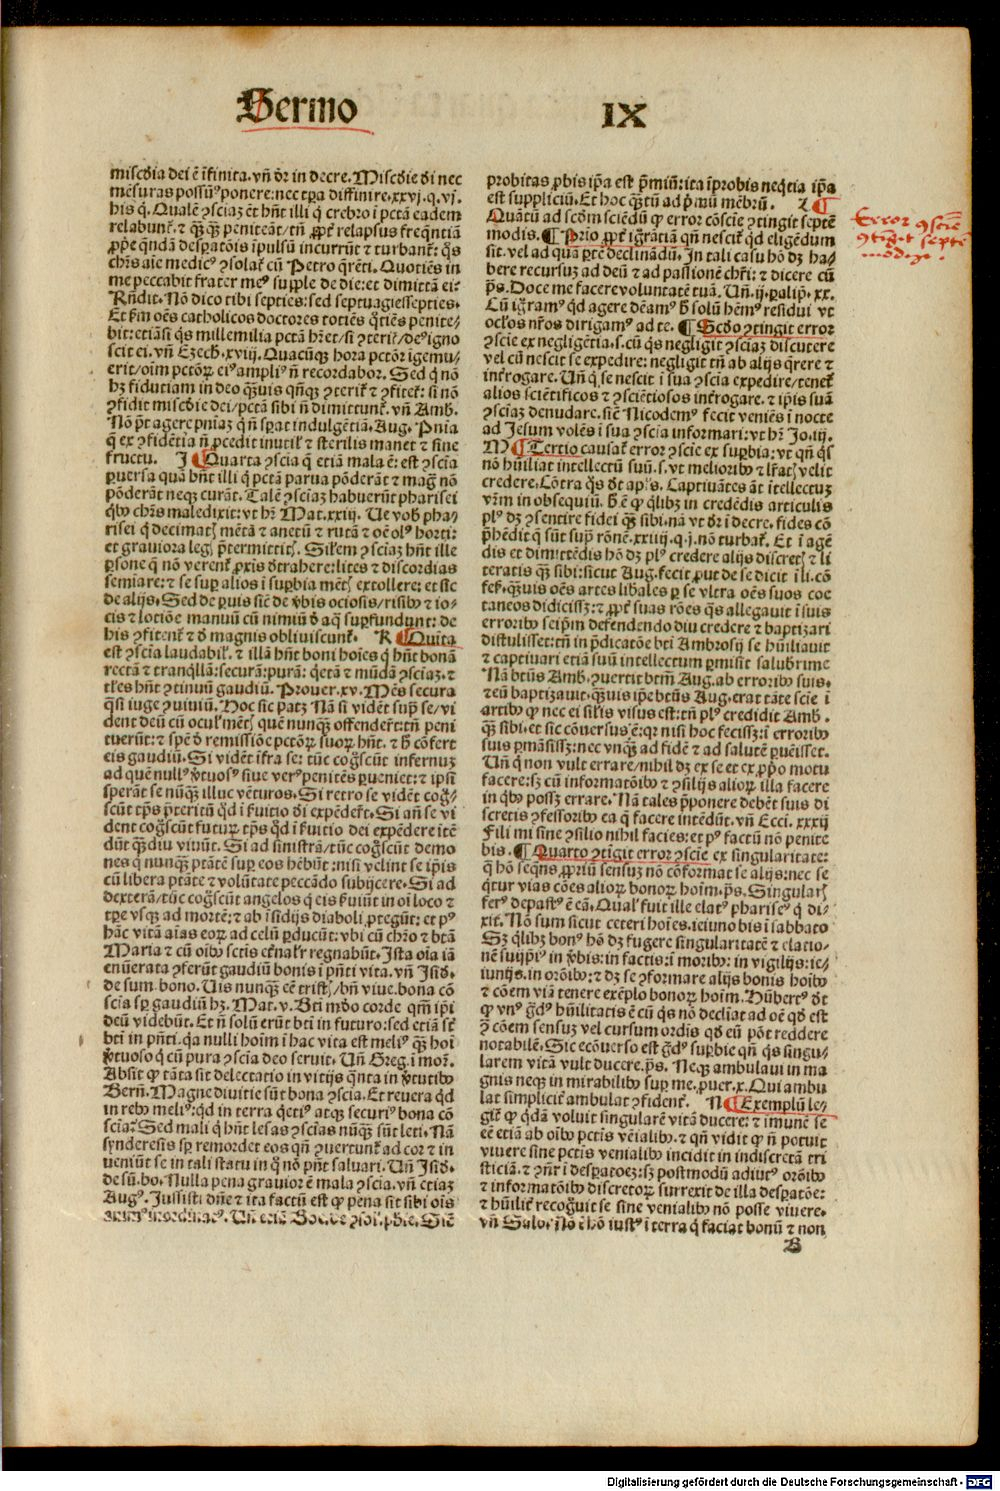 Sermo IX
misc̄dia dei ē īfinita. vñ dr̄ in decre. Misc̄die dī nec
mēsuras possūꝰ ponere: nec tꝑa diffinire. xxvj. q. vj.
his q̇. Qualē ɔsciaꝫ ēt hn̄t illi q̇ crebro ī pctā eadem
relabunt᷑. ⁊ qꝫ̄ qꝫ̄ peniteāt / tn̄ ꝓpt̄ relapsus freq̄ntiā
ꝓꝑe q̄ndā despatōis īpulsū incurrūt ⁊ turbant᷑: q̄s
chr̄s aīe medicꝰ ɔsolat᷑ cū Petro q̄rēti. Quotiēs in
me peccabit frater meꝰ supple de die: et dimittā ei:
Rn̄dit. Nō dico tibi septies: sed septuagiessepties.
Et ẜm oēs catholicos doctores totiēs q̄tiēs penite/
bit: etiāsi q̄s millemilia pctā hr̄et / si ɔterit᷑ / deꝰ igno
scit ei. vñ Ezech. xviij. Quacūqꝫ hora pctōr īgemu/
erit / oīm pctōꝝ eiꝰ ampliꝰ n̄ recordabor. Sed q̇ nō
hꝫ fiduciam in deo qꝫ̄uis qn̄qꝫ ɔterit᷑ ⁊ ɔfitet᷑: si nō
ɔfidit misc̄die dei / pctā sibi n̄ dimittunt᷑. vñ Amb.
Nō pt̄ agere pn̄iaꝫ q̇ n̄ sꝑat indulgētiā. Aug. Pn̄ia
q̄ ex ɔfidētia n̄ ꝓcedit inutil᷑ ⁊ sterilis manet ⁊ sine
fructu. J ¶ Quarta ɔscia q̄ etiā mala ē: est ɔscia
ꝑuersa quā hn̄t illi q̇ pctā parua pōderāt ⁊ mag᷑ nō
pōderāt neqꝫ curāt. Talē ɔsciaꝫ habuerūt pharisei
q̇bꝰ chr̄s maledixit: vt hr̄ Mat. xxiij. Ue vob᷑ pha/
risei q̇ decimat᷑ mētā ⁊ anetū ⁊ rutā ⁊ oē olꝰ horti:
et grauiora leg᷑ p̄termittit᷑. Sil᷑em ɔsciaꝫ hn̄t ille
ꝑsone q̄ nō verent᷑ ꝓxīs dt̄rahere: lites ⁊ discordias
semiare: ⁊ se suꝑ alios ī suꝑbia mēt᷑ extollere: et sic
de alijs. Sed de ꝑuis sic̄ de v̄bis ociosis / risibꝰ ⁊ io/
cis ⁊ lotiōe manuū cū nimiū d̄ aq̄ suꝑfundunt᷑: de
his ɔfitent᷑ ⁊ d̄ magnis obliuiscunt᷑. K ¶ Quīta
est ɔscia laudabil᷑. ⁊ illā hn̄t boni hoīes q̇ hn̄t bonā
rectā ⁊ tranq̇llā: securā: purā: q̇etā ⁊ mūdā ɔsciaꝫ. ⁊
tl̄es hn̄t ɔtinuū gaudiū. Prouer. xv. Mēs secura
q̄si iuge ɔuiuiū. Hoc sic patꝫ Nā si vidēt supͣ se / vi
dent deū cū ocul᷑ mēt᷑ quē nunqꝫ̄ offenderūt: tn̄ peni
tuerūt: ⁊ spē d̄ remissiōe pctōꝝ suoꝝ hn̄t. ⁊ h̄ cōfert
eis gaudiū. Si vidēt īfra se: tūc cog᷑scūt infernuꝫ
ad quē nullꝰ v̄tuosꝰ siue verꝰ penitēs ꝑueniet: ⁊ ip̄i
sperāt se nūqꝫ̄ illuc vēturos. Si retro se vidēt cog᷑/
scūt tp̄s p̄teritū qd̄ ī ẜuitio dī expēdert̄. Si an̄ se vi
dent cog᷑scūt futuꝝ tp̄s qd̄ ī ẜuitio dei expēdere itē
dūt qꝫ̄diu viuūt. Si ad sinistrā / tūc cog᷑scūt demo
nes q̇ nunqꝫ̄ ptātē suꝑ eos hēbūt: nisi velint se ip̄is
cū libera ptāte ⁊ volūtate peccādo subijcere. Si ad
dexterā / tūc cog᷑scūt angelos q̇ eis ẜuiūt in oī loco ⁊
tꝑe vsqꝫ ad mortē: ⁊ ab īsidijs diaboli ꝓtegūt: et pꝰ
hāc vitā aīas eoꝝ ad celū ꝑducūt: vbi cū chr̄o ⁊ bt̄ā
Maria ⁊ cū oībꝰ sctīs et̄nal᷑r regnabūt. Ista oīa iā
enūerata ɔferūt gaudiū bonis ī pn̄ti vita. vñ Isid.
de sum. bono. Uis nunqꝫ̄ eē trist᷑ / bn̄ viue. bona cō
scia sꝑ gaudiū hꝫ. Mat. v. Bt̄i mūdo corde qm̄ ip̄i
deū videbūt. Et n̄ solū erūt bt̄i in futuro: sed etiā st̄
bt̄i in pn̄ti. qꝛ nulli hoīm ī hac vita est meliꝰ qꝫ̄ hoī
v̄tuoso q̇ cū pura ɔscia deo seruit. Uñ Greg. ī mor.
Absit qꝫ tāta sit delectatio in vitijs q̄nta in v̄tutibꝰ
Bern̄. Magne diuitie sūt bona ɔscia. Et reuera qd̄
in rebꝰ meliꝰ: qd̄ in terra q̇etiꝰ atqꝫ securiꝰ bona cō
scia: Sed mali q̇ hn̄t lesas ɔscias nūqꝫ̄ sūt leti. Nā
synderesis sꝑ remordet eos qn̄ ɔuertunt᷑ ad cor ⁊ in
ueniūt se in tali statu in q̊ nō pn̄t saluari. Uñ Isid.
de sū. bo. Nulla pena grauior ē mala ɔscia. vñ etiaꝫ
Augꝰ. Jussisti dn̄e ⁊ ita factū est qꝫ pena sit sibi oīs
Uñ etiā Boe. de ɔsol. phie. Sic̄
probitas ꝓbis ip̄a est p̄miū: ita īprobis neq̇tia ip̄a
est suppliciū. Et hoc qꝫ̄tū ad p̄mū mēbrū. L ¶
Quātū ad scdm̄ sciēdū qꝫ error cōscie ɔtingit septē
modis. ¶ Prīo ꝓpt̄ īgratiā qn̄ nescit᷑ qd̄ eligēdum
sit. vel ad quā ꝑtē declinādū. In tali casu hō dꝫ ha/
bere recursuꝫ ad deū ⁊ ad passionē chr̄i: ⁊ dicere cū
p̄s. Doce me facere volūtatē tuā. Uñ. ij. palip̄. xx.
Cū ig᷑ramꝰ qd̄ agere deam̄ꝰ h̄ solū hēmꝰ residui vt
ocl̄os nr̄os dirigamꝰ ad te. ¶ Scd̄o ɔtingit error
ɔscie ex negligētia. s. cū q̄s negligit ɔsciaꝫ discutere
vel cū nescit se expedire: negligit tn̄ ab alijs q̄rere ⁊
int̄rogare. Uñ q̇ se nescit ī sua ɔscia expedire / tenet᷑
alios sciētificos ⁊ ɔsciētiosos int̄rogare. ⁊ ip̄is suā
ɔsciaꝫ denudare. sic̄ Nicodemꝰ fecit veniēs ī nocte
ad Jesum volēs ī sua ɔscia informari: vt hr̄ Jo. iij.
M ¶ Tertio causat᷑ error ɔscie ex suꝑbia: vt qn̄ q̄s
nō hūiliat intellectū suū. s. vt melioribꝰ ⁊ lr̄at᷑ velit
credere. Cōtra q̄s dt̄ apl̄s. Captiuātes āt ītellectuꝫ
vr̄m in obsequiū. h̄ ē qꝫ q̇libꝫ in credēdis articulis
plꝰ dꝫ ɔsentire fidei qꝫ̄ sibi. nā vt dr̄ ī decre. fides cō
p̄hēdit q̄ sūt supͣ rōnē. xxiiij. q. j. nō turbat᷑. Et ī agē
dis et dimittēdis hō dꝫ plꝰ credere alijs discret᷑ ⁊ li
teratis qꝫ̄ sibi: sicut Aug. fecit ꝓut de se dicit ī li. cō
fes᷑. qꝫ̄uis oēs artes libales ꝑ se vltra oēs suos coe
taneos didicissꝫ: ⁊ ꝓpt̄ suas rōes q̄s allegauit ī suis
erroribꝰ seip̄m defendendo diu credere ⁊ baptizari
distulisset: tn̄ in p̄dicatōe bt̄i Ambrosij se hūiliauit
⁊ captiuari etiā suū intellectum ꝑmisit salub᷑rime
Nā bt̄us Amb. ɔuertit bt̄m Aug. ab erroribꝰ suis.
⁊ eū baptizauit. qꝫ̄uis ip̄e bt̄us Aug. erat tāte scie ī
artibꝰ qꝫ nec ei sil᷑is visus est: tn̄ plꝰ credidit Amb.
qꝫ̄ sibi. et sic cōuersus ē: qꝛ nisi hoc fecissꝫ: ī erroribꝰ
suis ꝑmāsissꝫ: nec vnqꝫ̄ ad fidē ⁊ ad salutē ꝑuēisset.
Uñ q̇ non vult errare / nihil dꝫ ex se et ex ꝓp̄o motu
facere: sꝫ cū informatōibꝰ ⁊ ɔsilijs alioꝝ illa facere
in q̇bꝰ possꝫ errare. Nā tales p̄ponere debēt suis di
scretis ɔfessoribꝰ ea q̄ facere intēdūt. vñ Ecci. xxxij
Fili mi sine ɔsilio nihil facies: et pꝰ factū nō penite
bis. ¶ Quarto ɔtīgit error ɔscie ex singularitate:
q̇ hō seq̄ns ꝓpriū sensuꝫ nō cōformat se alijs: nec se
q̇tur vias cōes alioꝝ bonoꝝ hoīm. p̄s. Singular᷑
ferꝰ depastꝰ ē eā. Qual᷑ fuit ille elatꝰ phariseꝰ q̇ di/
xit. Nō sum sicut ceteri hoīes. ieiuno bis ī sabbato
Sꝫ q̇libꝫ bonꝰ hō dꝫ fugere singularitatē ⁊ elatio/
nē suiip̄iꝰ in v̄bis: in factis: ī moribꝰ: in vigilijs: ie/
iunijs. in orōibꝰ: ⁊ dꝫ se ɔformare alijs bonis hoībꝰ
⁊ cōem viā tenere exēplo bonoꝝ hoīm. Hūbertꝰ dt̄
qꝫ vnꝰ g᷑dꝰ hūilitatis ē cū q̄s nō decliat ad oē qd̄ est
ɔ̄ cōem sensuꝫ vel cursum ordis qd̄ eū pōt reddere
notabilē. Sic ecōuerso est g᷑dꝰ suꝑbie qn̄ q̄s singu/
larem vitā vult ducere. p̄s. Neqꝫ ambulaui in ma
gnis neqꝫ in mirabilibꝰ suꝑ me. ꝓuer. x. Qui ambu
lat simplicit᷑ ambulat ɔfident᷑. N ¶ Exemplū le/
git᷑ qꝫ q̇dā voluit singularē vitā ducere: ⁊ imunē se
eē etiā ab oībꝰ pctīs vēialibꝰ. ⁊ qn̄ vidit qꝫ n̄ potuit
viuere sine pctīs venialibꝰ incidit in indiscretā tri
sticiā. ⁊ ɔn̄r ī despatoeꝫ: sꝫ postmodū adiutꝰ orōibꝰ
⁊ informatōibꝰ discretoꝝ surrexit de illa despatōe:
⁊ hūilit᷑ recog᷑uit se sine venialibꝰ nō posse viuere.
vñ Salo. Nō ē hō iustꝰ ī terra q̇ faciat bonū ⁊ non
B
Error ɔscīe
ɔtīgit septē
modis.
Digitalisierung gefördert durch die Deutsche Forschungsgemeinschaft - DFG